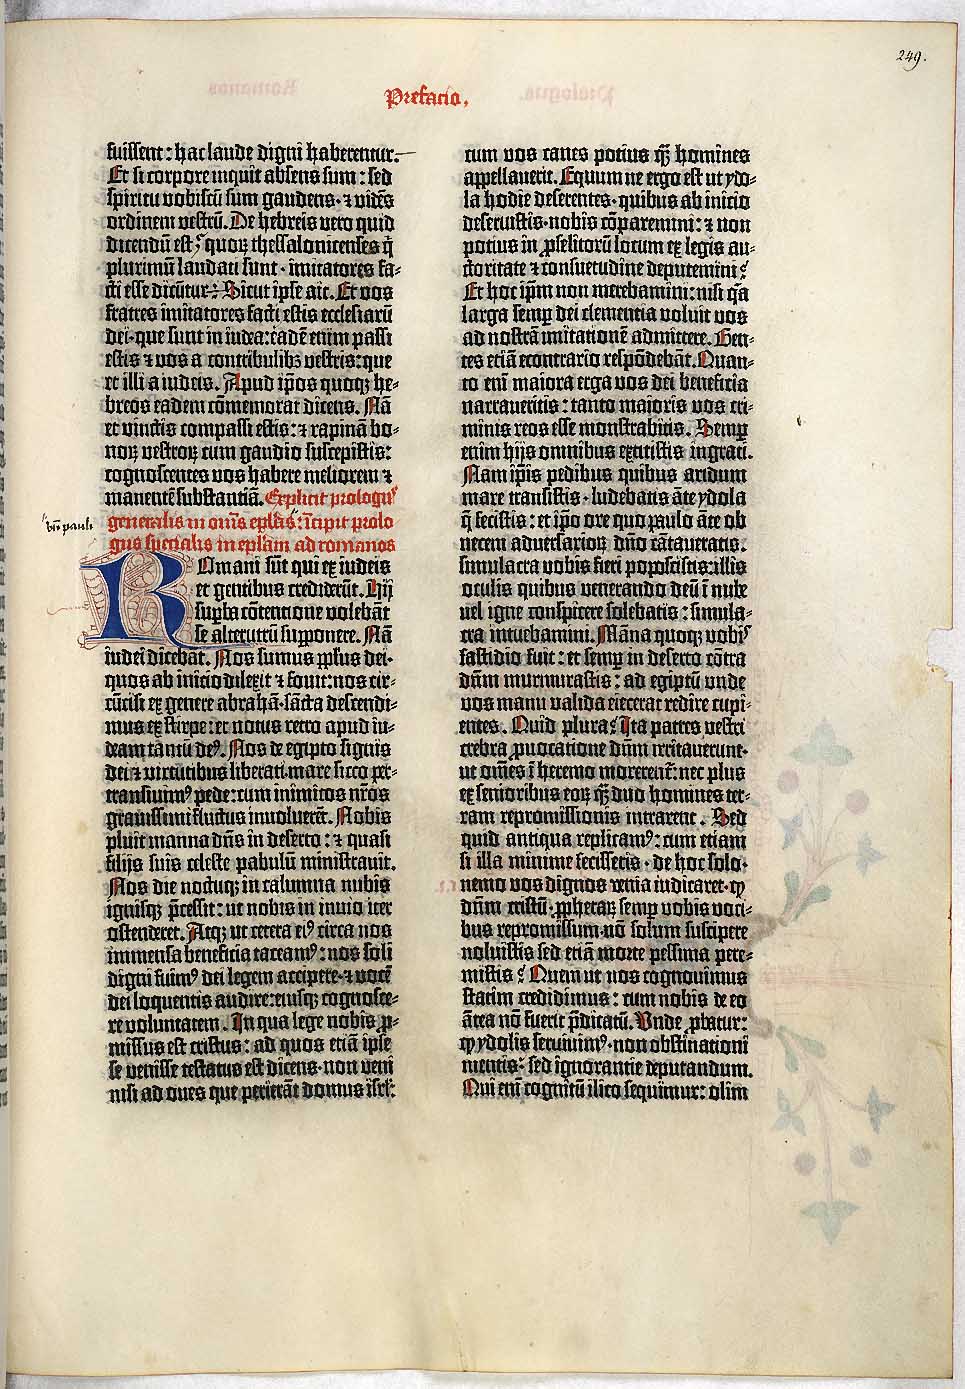 249.
Prefacio.
fuissent: hac laude digni haberentur.
Et si corpore inquit absens sum: sed
spiritu vobiscū sum gaudens· ⁊ vidēs
ordinem vestrū. De hebreis vero quid
dicendū est? quoꝝ thessalonicenses q̄
plurimū laudati sunt · imitatores fa-
cti esse dicūtur: Sicut ipse ait. Et vos
fratres imitatores facti estis ecclesiarū
dei· que sunt in iudea: eadē enim passi
estis ⁊ vos a contribulibꝫ vestris: que
et illi a iudeis. Apud ip̄os quoqꝫ he-
breos eadem cōmemorat dicens. Nā
et vinctis compassi estis: ⁊ rapinā bo-
noꝝ vestroꝝ cum gaudio suscepistis:
cognoscentes vos habere meliorem ⁊
manentē substantiā. Explicit prologꝰ
generalis in om̄s epl̄as: īcipit prolo
vn̄ pauli
gus specialis in epl̄am ad romanos
ROmani sūt qui ex iudeis
et gentibus crediderūt. Hij
supͥba cōtentione volebāt
se alterutrū suꝑponere. Nā
iudei dicebāt. Nos sumus ꝓplus dei·
quos ab inicio dilexit ⁊ fouit: nos cir-
cūcisi ex genere abrahā· sācta descendi-
mus ex stirpe: et notus retro apud iu-
deam tātū deꝰ. Nos de egipto signis
dei ⁊ virtutibus liberati· mare sicco per-
transiuimꝰ pede: cum inimicos nr̄os
grauissimi fluctus inuoluerēt. Nobis
pluit manna dn̄s in deserto: ⁊ quasi
filijs suis celeste pabulū ministrauit.
Nos die noctuqꝫ in columna nubis
ignisqꝫ p̄cessit: ut nobis in inuio iter
ostenderet. Atqꝫ ut cetera eiꝰ circa nos
immensa beneficia taceamꝰ: nos soli
digni fuimꝰ dei legem accipere· ⁊ vocē
dei loquentis audire: eiusqꝫ cognosce-
re voluntatem. In qua lege nobis ꝓ-
missus est cristus: ad quos etiā ipse
se venisse testatus est dicens· non veni
nisi ad oues que perierāt domus isrl̄:
cum vos canes potius q̄ꝫ homines
appellauerit. Equum ne ergo est ut ydo-
la hodie deserentes· quibus ab inicio
deseruistis· nobis cōparemini: ⁊ non
potius in ꝓselitorū locum ex legis au-
ctoritate ⁊ consuetudine deputemini?
Et hoc ip̄m non merebamini: nisi q̄a
larga semꝑ dei clementia voluit vos
ad nostrā imitationē admittere. Gen-
tes etiā econtrario respōdebāt. Quan-
to eni maiora erga vos dei beneficia
narraueritis: tanto maioris vos cri-
minis reos esse monstrabitis. Semꝑ
enim hijs omnibus extitistis ingrati.
Nam ip̄is pedibus quibus aridum
mare transistis· ludebatis āte ydola
q̄ fecistis: et ip̄o ore quo paulo āte ob
necem aduersarioꝝ dn̄o cātaueratis·
simulacra vobis fieri poposcistis: illis
oculis quibus venerando deū ī nube
vel igne conspicere solebatis: simula-
cra intuebamini. Māna quoqꝫ vobiꝰ
fastidio fuit: et semꝑ in deserto cōtra
dn̄m murmurastis: ad egiptū unde
vos manu valida eiecerat redire cupi-
entes. Quid plura? Ita patres vestri
crebra ꝓuocatione dn̄m irritauerunt·
ut om̄es ī heremo morerent̄: nec plus
ex senioribus eoꝝ q̄ꝫ duo homines ter-
ram repromissionis intrarent. Sed
quid antiqua replicamꝰ: cum etiam
si illa minime fecissetis · de hoc solo ·
nemo vos dignos venia iudicaret· ꝙ
dn̄m cristū· ꝓphetaꝝ semꝑ vobis voci-
bus repromissum· nō solum suscipere
noluistis sed etiā morte pessima pere-
mistis? Quem ut nos cognouimus
statim credidimus: cum nobis de eo
ātea nō fuerit p̄dicatū. Unde ꝓbatur:
ꝙ ydolis seruiuimꝰ· non obstinationi
mentis· sed ignorantie deputandum.
Qui eni cognitū ilico sequimur: olim